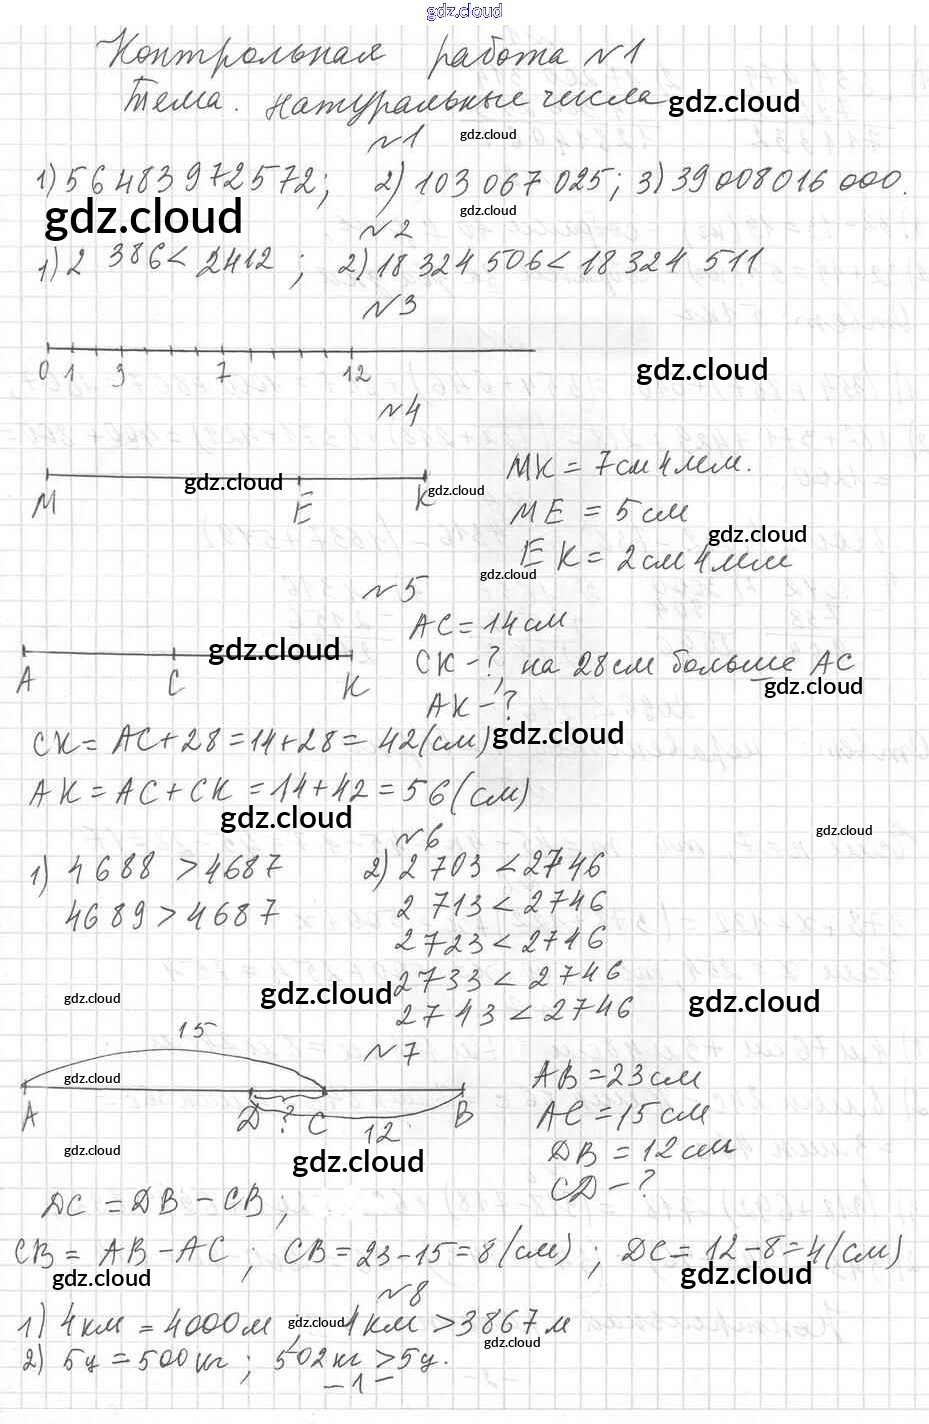 gdz.cloud
Контрольная работа №1
Тема. Натуральные числа gdz.cloud
№1 gdz.cloud
1) 56 483 972 572; 2) 103 067 025; 3) 39 008 016 000.
gdz.cloud №2 gdz.cloud
1) 2 386 < 2412 ; 2) 18 324 506 < 18 324 511
№3
0 1 3 7 12 gdz.cloud
№4
gdz.cloud gdz.cloud MK = 7см 4мм.
M E K ME = 5 см
gdz.cloud
gdz.cloud EK = 2см 4мм
№5
AC = 14 см
gdz.cloud CK - ?, на 28см больше AC
A C K gdz.cloud
AK - ?
CK = AC + 28 = 14 + 28 = 42 (см) gdz.cloud
AK = AC + CK = 14 + 42 = 56 (см)
gdz.cloud
№6 gdz.cloud
1) 4688 > 4687 2) 2 703 < 2746
4689 > 4687 2 713 < 2746
2 723 < 2746
2733 < 2746
gdz.cloud gdz.cloud gdz.cloud
2743 < 2746
15
№7
gdz.cloud AB = 23 см
A D ? C B AC = 15 см
12
gdz.cloud DB = 12 см
gdz.cloud
CD - ?
DC = DB - CB ;
CB = AB - AC ; CB = 23 - 15 = 8 (см) ; DC = 12 - 8 = 4 (см)
gdz.cloud gdz.cloud
№8
1) 4 км = 4000 м ; gdz.cloud 4 км > 3867 м
gdz.cloud
2) 5ц = 500 кг ; 502 кг > 5ц.
- 1 -